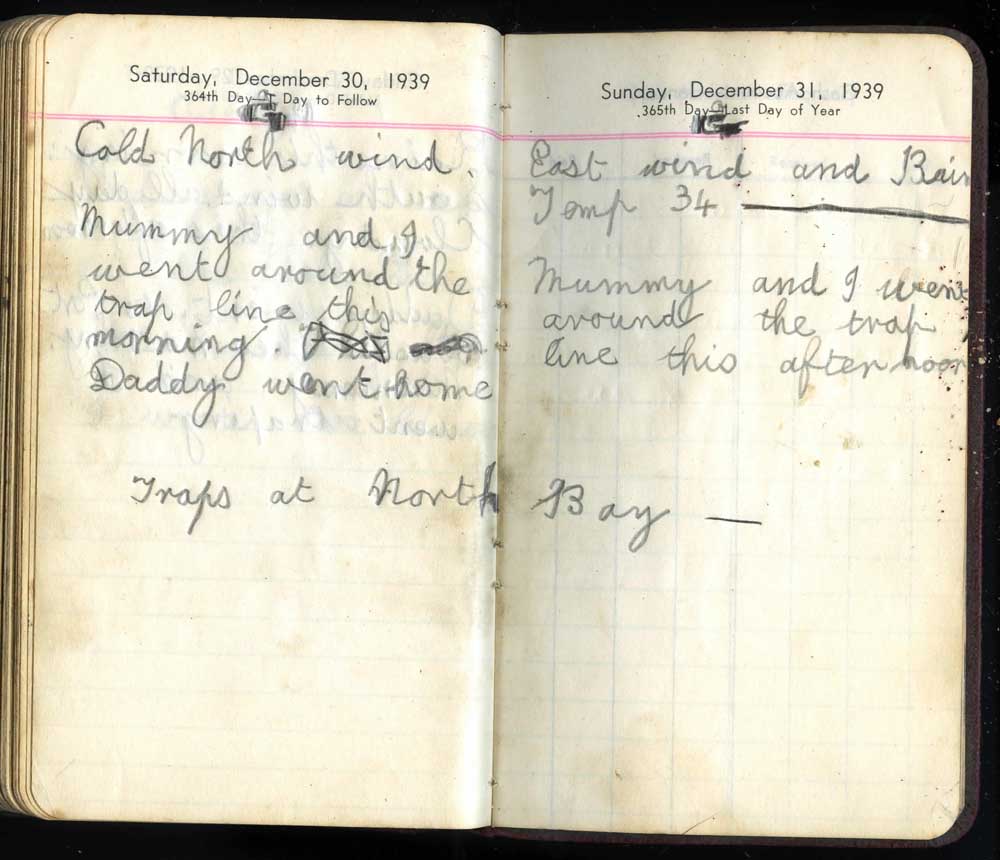 Saturday, December 30, 1939
364th Day—1 Day to Follow
Cold North wind.
Mummy and I
went around the
trap line this
morning.
Daddy went home
Sunday, December 31, 1939
365th Day—Last Day of Year
East wind and Rain
Temp 34
Mummy and I went
around the trap
line this afternoon
Traps at North Bay —